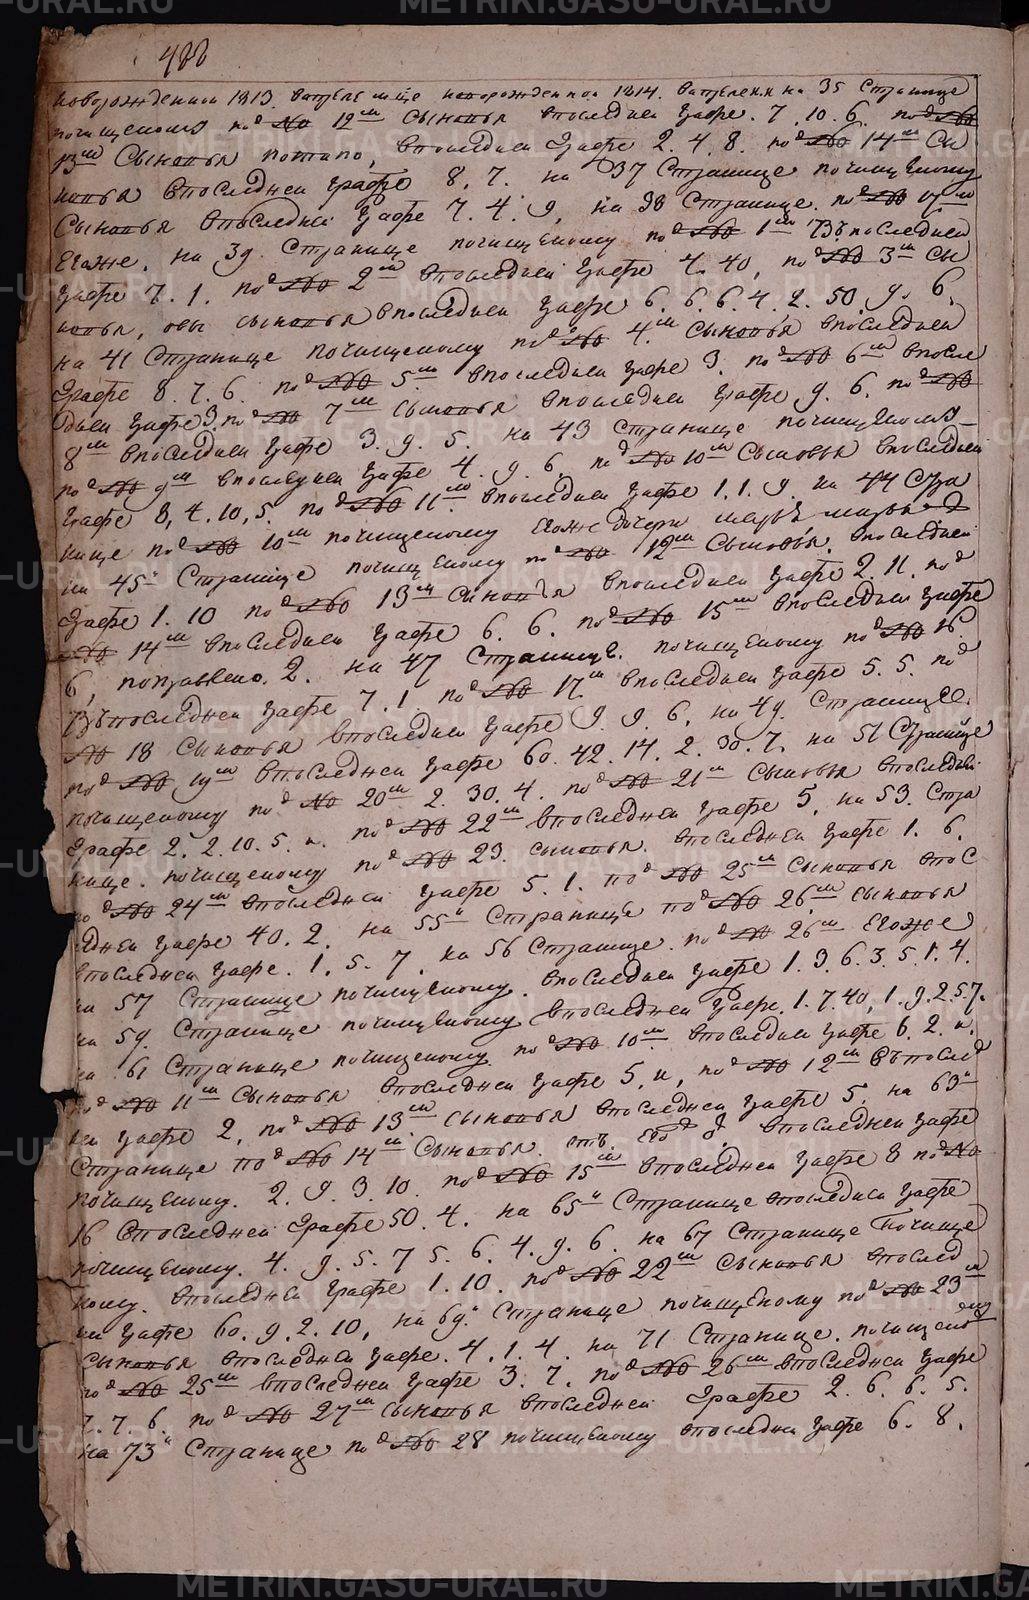 488
новорожденнои 1813. вместе новорожденнои 1814. на 35 Странице
почищеному под № 12м Сыновья впоследнеи Графе. 7. 10. 6. под №
13м Сыновья впоследнеи Графе 2. 4. 8. под № 14м Сы
новья впоследнеи графе 8. 7. на 37 Странице почищеному
Сыновья впоследнеи Графе 7. 4. 9, на 38 Странице. под № 17м
Егоже. на 39 Странице почищеному под № 1м Въпоследнеи
Графе 7. 1. под № 2м впоследнеи Графе 4. 40, под № 3м Сы
новья, сыновья впоследнеи Графе 6. 6. 6. 4. 2. 50. 9. 6.
на 41 Странице почищеному под № 4м Сыновья впоследнеи
Графе 8. 7. 6. под № 5м впоследнеи Графе 3. под № 6м впосле
днеи Графе 3. под № 7м Сыновья впоследнеи Графе 9. 6. под №
8м впоследнеи Графе 3. 9. 5. на 43 Странице почищеному
под № 9м впоследнеи Графе 4. 9. 6. под № 10м Сыновья впоследнеи
Графе 8. 4. 10. 5. под № 11м впоследнеи Графе 1. 1. 9. на 44 Стра
нице под № 10м почищеному Егоже дочери
на 45й Странице почищеному под № 12м Сыновья. впоследнеи
Графе 1. 10 под № 13м Сыновья впоследнеи Графе 2. 11. под
№ 14м впоследнеи Графе 6. 6. под № 15м впоследнеи Графе
6, поправлено. 2. на 47 Странице. почищеному под № 16.
Въпоследнеи Графе 7. 1. под № 17м впоследнеи Графе 5. 5. под
№ 18 Сыновья впоследнеи Графе 9. 9. 6. на 49. Странице.
под № 19м впоследнеи Графе 60. 42. 14. 2. 30. 7. на 51 Странице
почищеному под № 20м 2. 30. 4. под № 21м Сыновья впоследнеи
Графе 2. 2. 10. 5. и. под № 22м впоследнеи Графе 5. на 53. Стра
нице. почищеному под № 23. сыновья. впоследнеи Графе 1. 6.
под № 24м впоследнеи Графе 5. 1. под № 25м Сыновья впос
леднеи Графе 40. 2. на 55й Странице под № 26м Сыновья
впоследнеи Графе. 1. 5. 7. на 56 Странице. под № 26м Егоже
на 57 Странице почищеному. впоследнеи Графе 1. 3. 6. 3. 5. 1. 4.
на 59. Странице почищеному впоследнеи Графе. 1. 7. 40, 1. 9. 2. 5. 7.
на 61 Странице почищеному. под № 10м впоследнеи Графе 6. 2. и.
под № 11м Сыновья впоследнеи Графе 5, и, под № 12м Въпослед
неи Графе 2, под № 13м Сыновья впоследнеи Графе 5. на 63й
Странице под № 14м Сыновья. впоследнеи Графе
почищеному. 2. 9. 3. 10. под № 15м впоследнеи Графе 8 под №
16 впоследнеи Графе 50. 4. на 65й Странице впоследнеи Графе
почищеному. 4. 9. 5. 7 5. 6. 4. 9. 6. на 67 Странице Почище
ному. впоследнеи Графе 1. 10. под № 22м Сыновья впослед
неи Графе 60. 9. 2. 10, на 69й Странице почищеному под № 23м
Сыновья впоследнеи Графе. 4. 1. 4. на 71 Странице. почищеному
под № 25м впоследнеи Графе 3. 7. под № 26м впоследнеи Графе
7. 7. 6. под № 27м Сыновья впоследнеи Графе 2. 6. 6. 5.
на 73й Странице под № 28 почищеному впоследнеи Графе 6. 8.
METRIKI.GASO-URAL.RU